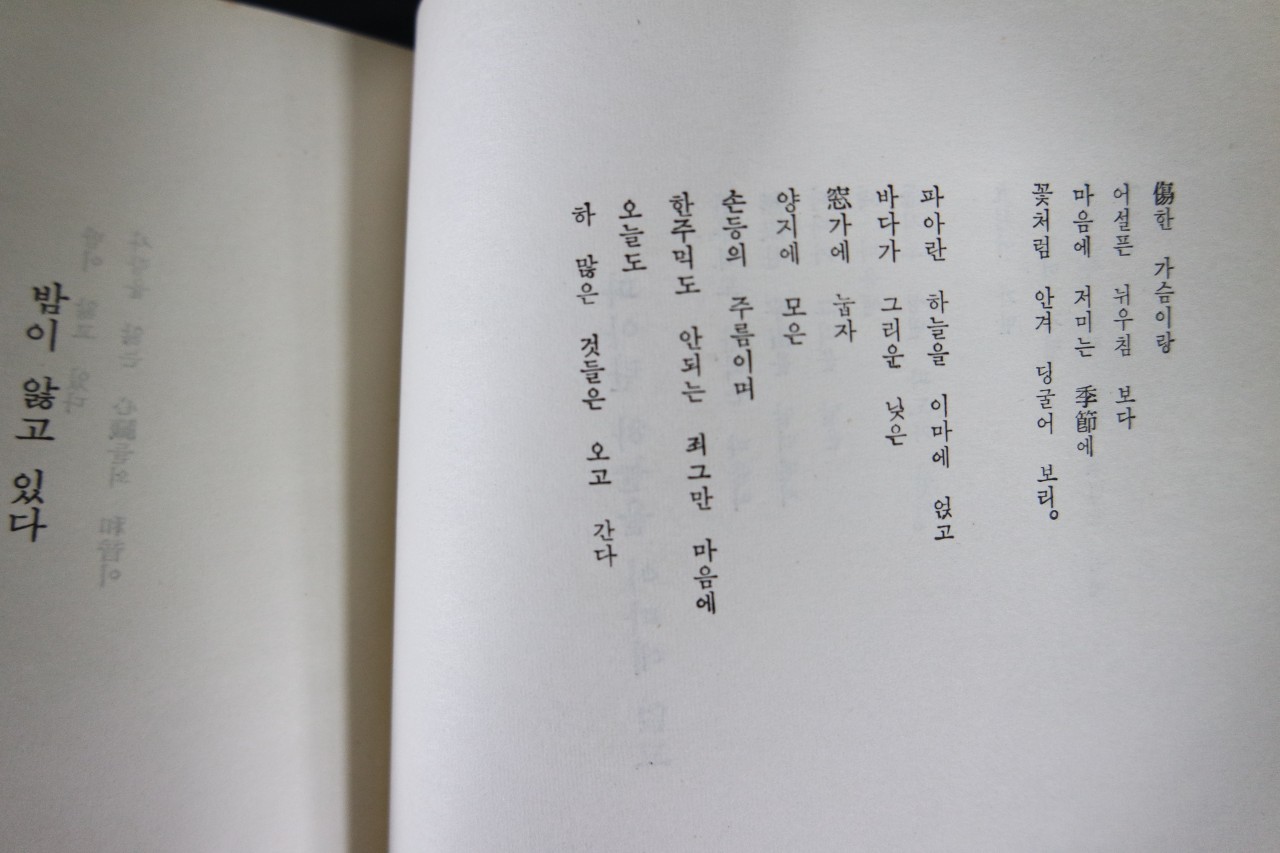 傷한 가슴이랑
어설픈 뉘우침 보다
마음에 저미는 季節에
꽃처럼 안겨 딩굴어 보리。
파아란 하늘을 이마에 얹고
바다가 그리운 낮은
窓가에 눕자
양지에 모은
손등의 주름이며
한주먹도 안되는 죄그만 마음에
오늘도
하 많은 것들은 오고 간다
밤이 앓고 있다